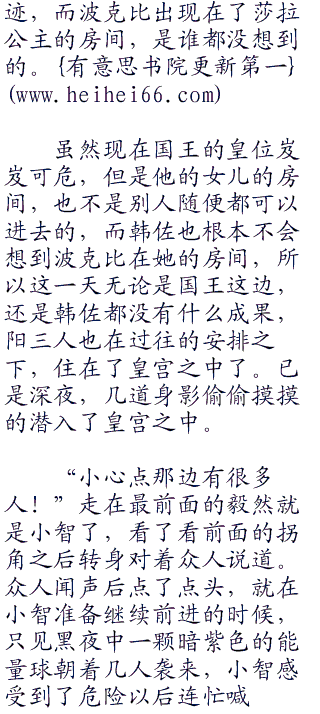 迹，而波克比出现在了莎拉
公主的房间，是谁都没想到
的。{有意思书院更新第一}
(www.heihei66.com)
虽然现在国王的皇位岌
岌可危，但是他的女儿的房
间，也不是别人随便都可以
进去的，而韩佐也根本不会
想到波克比在她的房间，所
以这一天无论是国王这边，
还是韩佐都没有什么成果，
阳三人也在过往的安排之
下，住在了皇宫之中了。已
是深夜，几道身影偷偷摸摸
的潜入了皇宫之中。
“小心点那边有很多
人！”走在最前面的毅然就
是小智了，看了看前面的拐
角之后转身对着众人说道。
众人闻声后点了点头，就在
小智准备继续前进的时候，
只见黑夜中一颗暗紫色的能
量球朝着几人袭来，小智感
受到了危险以后连忙喊